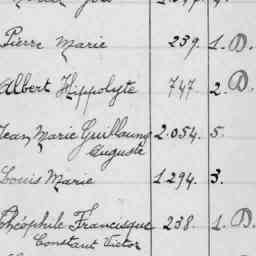 Pierre Marie 239. 1. D.
Albert Hippolyte 747. 2. D.
Jean Marie Guillaume 2.054. 5.
Auguste
Louis Marie 1.294. 3.
Théophile Francisque 238. 1. D.
Constant Victor